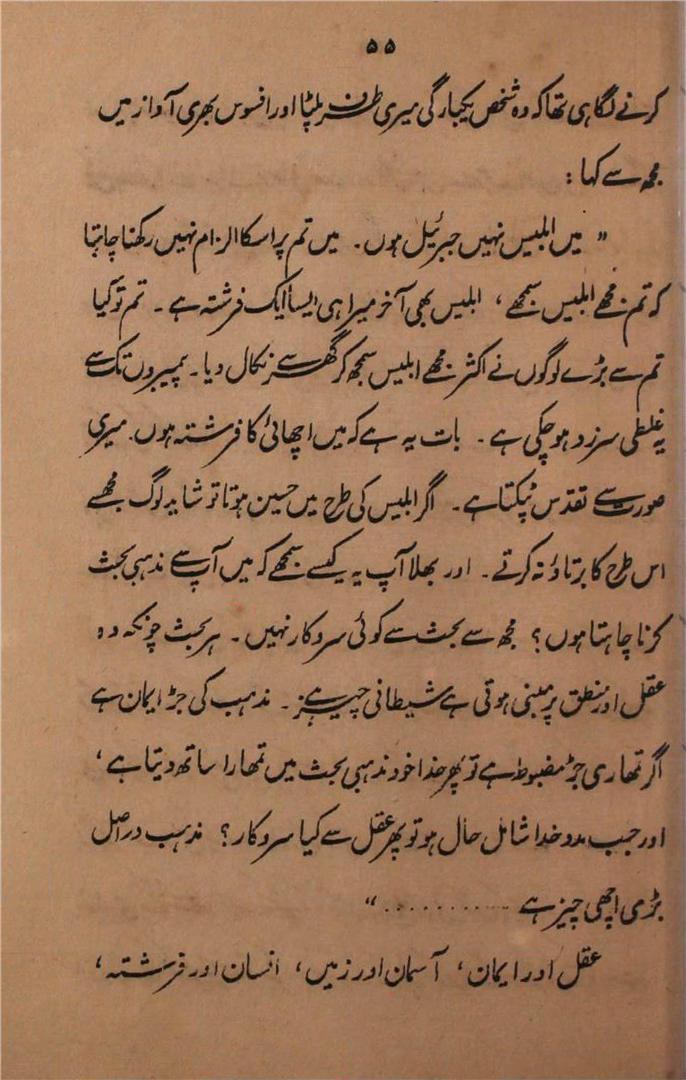 ۵۵
کرنے لگا ہی تھا کہ وہ شخص یکبارگی میری طرف پلٹا اور افسوس بھری آواز میں
مجھ سے کہا :
" میں ابلیس نہیں جبرئیل ہوں۔ میں تم پر اسکا الزام نہیں رکھنا چاہتا
کہ تم نے مجھے ابلیس سمجھے ، ابلیس بھی آخر میرا ہی ایسا ایک فرشتہ ہے ۔ تم تو کیا
تم سے بڑے لوگوں نے اکثر مجھے ابلیس سمجھ کر گھر سے نکال دیا۔ پیمبروں تک سے
یہ غلطی سرزد ہو چکی ہے ۔ بات یہ ہے کہ میں اچھائی کا فرشتہ ہوں۔ میری
صورت سے تقدس ٹپکتا ہے ۔ اگر ابلیس کی طرح میں حسین ہوتا تو شاید لوگ مجھے
اس طرح کا برتاؤ نہ کرتے ۔ اور بھلا آپ یہ کیسے سمجھے کہ میں آپ سے مذہبی بحث
کرنا چاہتا ہوں ؟ مجھ سے بحث سے کوئی سروکار نہیں ۔ ہر بحث چونکہ وہ
عقل اور منطق پر مبنی ہوتی ہے شیطانی چیز ہے ۔ مذہب کی جڑ ایمان ہے
اگر تمھاری جڑ مضبوط ہے تو پھر خدا خود مذہبی بحث میں تمھارا ساتھ دیتا ہے ،
اور جب مدد خدا شامل حال ہو تو پھر عقل سے کیا سروکار ؟ مذہب دراصل
بڑی اچھی چیز ہے ............ "
عقل اور ایمان ، آسمان اور زمیں ، انسان اور فرشتہ ،